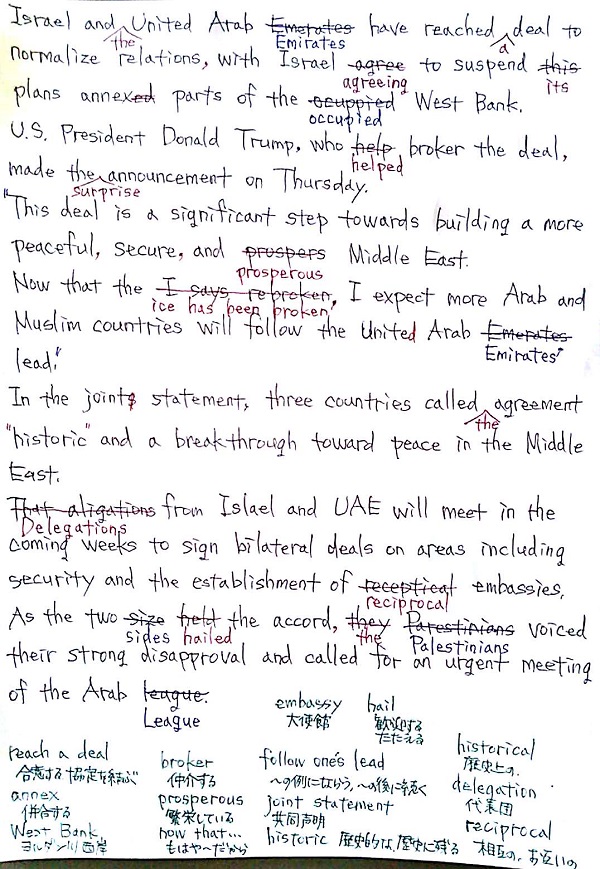 Israel and United Arab Emerates have reached deal to
the Emirates a
normalize relations, with Israel agree to suspend this
agreeing its
plans annexed parts of the ocuppied West Bank.
occupied
U.S. President Donald Trump, who help broker the deal,
helped
made the announcement on Thursday.
surprise
"This deal is a significant step towards building a more
peaceful, secure, and prospers Middle East.
prosperous
Now that the I says rebroken, I expect more Arab and
ice has been broken
Muslim countries will follow the United Arab Emerates
Emirates'
lead."
In the joints statement, three countries called agreement
the
"historic" and a breakthrough toward peace in the Middle
East.
That aligations from Islael and UAE will meet in the
Delegations
coming weeks to sign bilateral deals on areas including
security and the establishment of receptical embassies.
reciprocal
As the two size held the accord, they Parestinians voiced
sides hailed the Palestinians
their strong disapproval and called for an urgent meeting
of the Arab league.
League
embassy hail
大使館 歓迎する
たたえる
reach a deal broker follow one's lead historical
合意する 協定を結ぶ 仲介する 〜の例にならう、〜の後に続く 歴史上の
annex prosperous joint statement delegation
併合する 繁栄している 共同声明 代表団
West Bank now that... historic 歴史的な、歴史に残る reciprocal
ヨルダン川西岸 もはや〜だから 相互の、お互いの